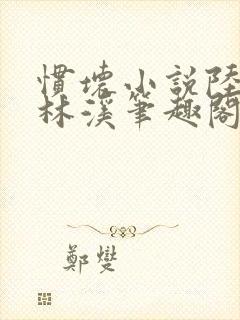 慣壞小説陸
林溪筆趣閣
鄭燮